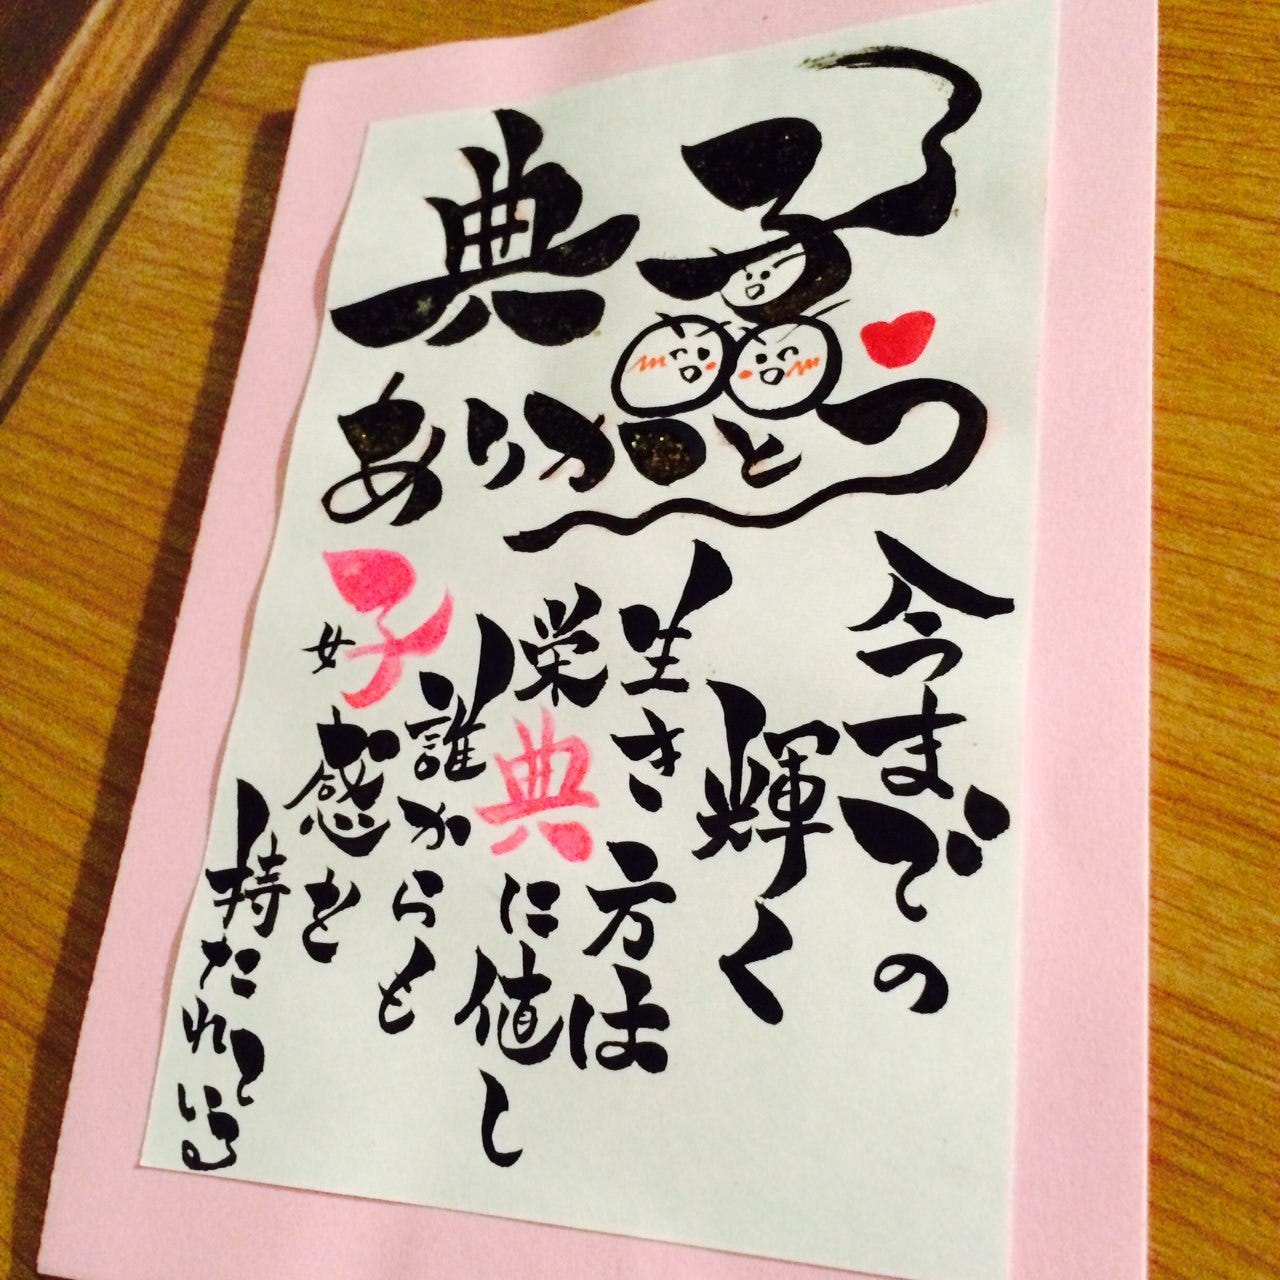 典子
ありがとう
今までの
輝く
生き方は
栄典に値し
誰からも
好感を
持たれている